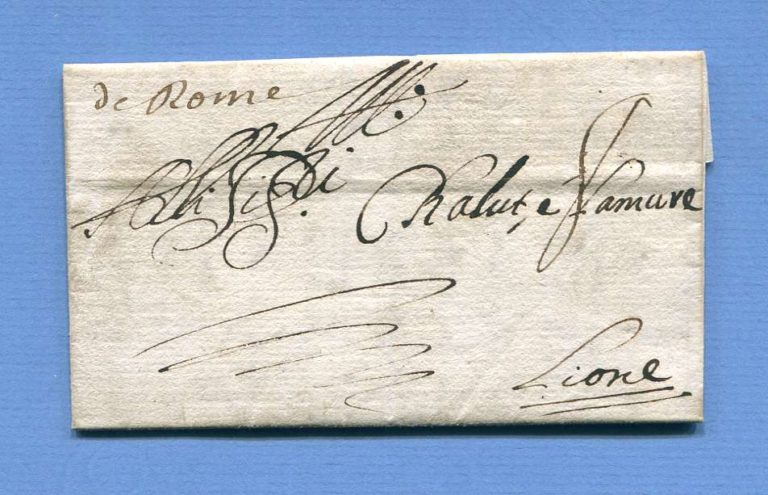 de Rome
Alli Sig.ri
Ralut, e Famure
Lione